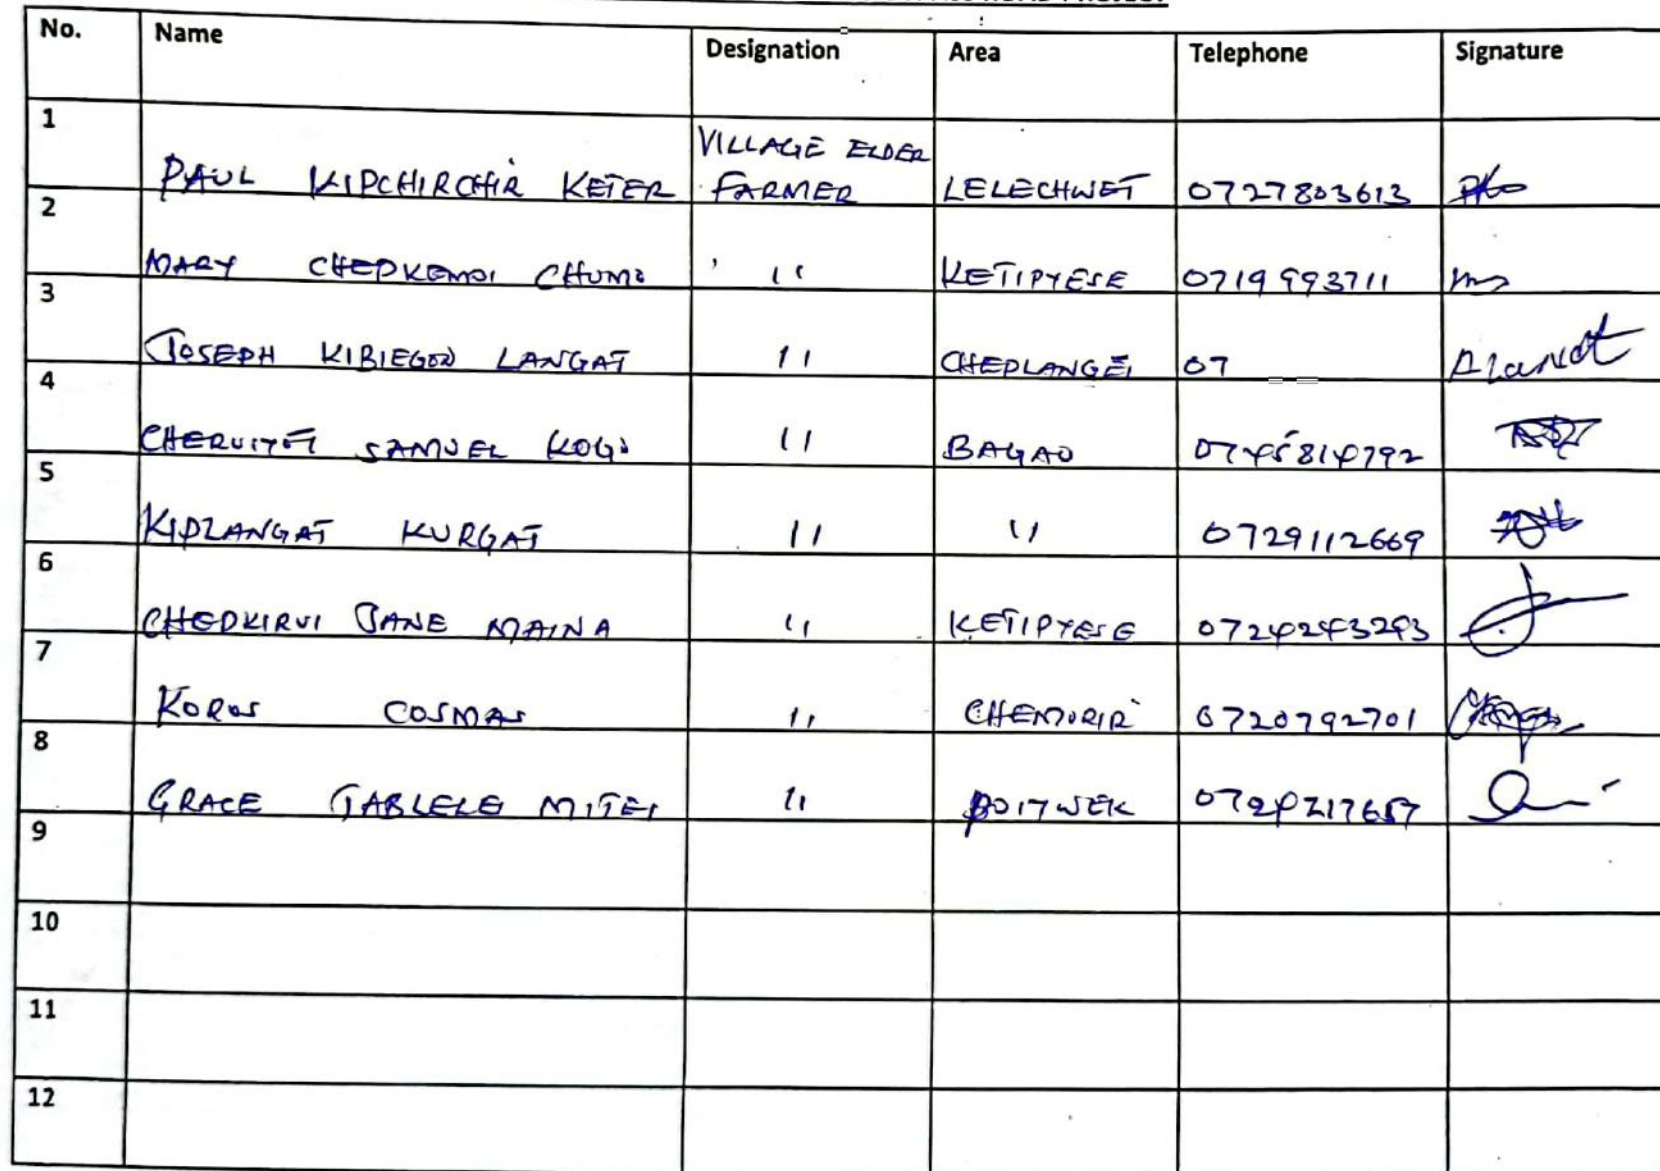 ROAD PROJECT
No. Name Designation Area Telephone Signature
1 PAUL KIPCHIRCHIR KETER VILLAGE ELDER FARMER LELECHWET 0727803613
2 MARY CHEPKEMOI CHUMO " KETIPYESE 0719993711
3 JOSEPH KIBIEGON LANGAT " CHEPLANGEI 07
4 CHERUIYOT SAMUEL KOGO " BAGAO 0745814792
5 KIPLANGAT KURGAT " " 0729112669
6 CHEPKIRUI JANE MAINA " KETIPYESE 0724243293
7 KOROS COSMAS " CHEMORIR 0720792701
8 GRACE TABLELE MITEI " BOITWEK 0724217657
9
10
11
12